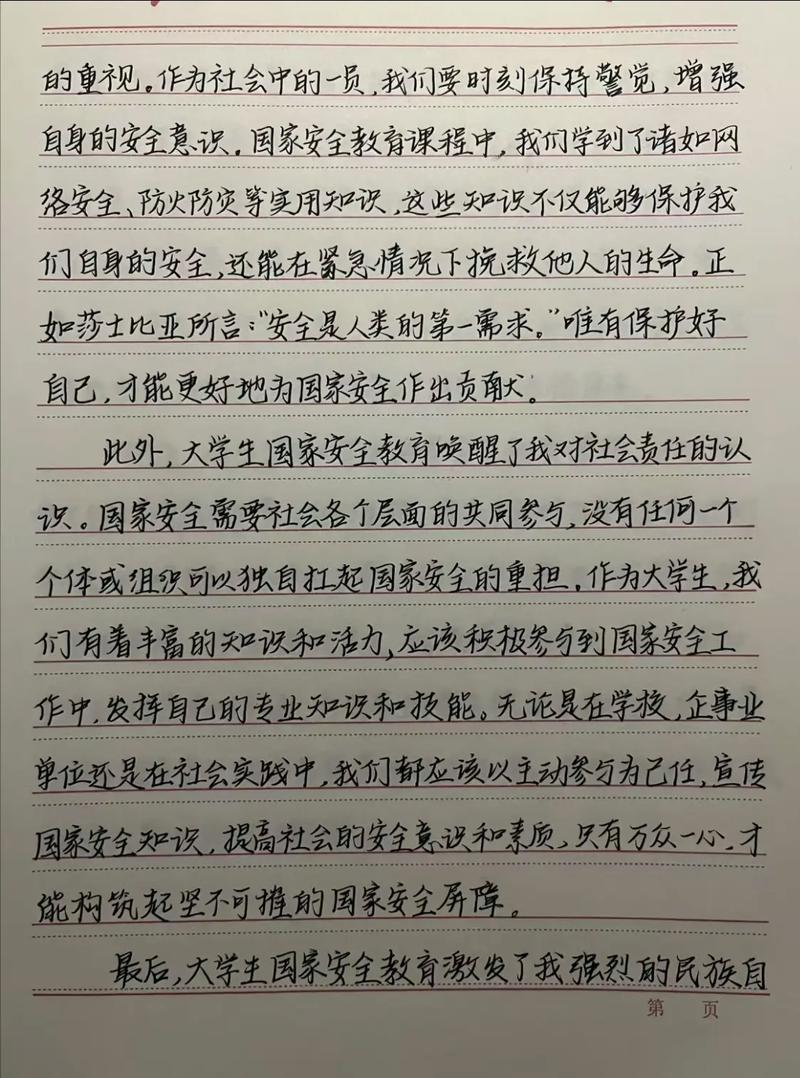 的重视。作为社会中的一员,我们要时刻保持警觉,增强
自身的安全意识。国家安全教育课程中,我们学到了诸如网
络安全、防火防灾等实用知识,这些知识不仅能够保护我
们自身的安全,还能在紧急情况下挽救他人的生命。正
如莎士比亚所言:“安全是人类的第一需求。”唯有保护好
自己,才能更好地为国家安全作出贡献。
此外,大学生国家安全教育唤醒了我对社会责任的认
识。国家安全需要社会各个层面的共同参与,没有任何一个
个体或组织可以独自扛起国家安全的重担。作为大学生,我
们有着丰富的知识和活力,应该积极参与到国家安全工
作中,发挥自己的专业知识和技能。无论是在学校,企事业
单位还是在社会实践中,我们都应该以主动参与为己任,宣传
国家安全知识,提高社会的安全意识和素质,只有万众一心,才
能构筑起坚不可摧的国家安全屏障。
最后,大学生国家安全教育激发了我强烈的民族自
第 页